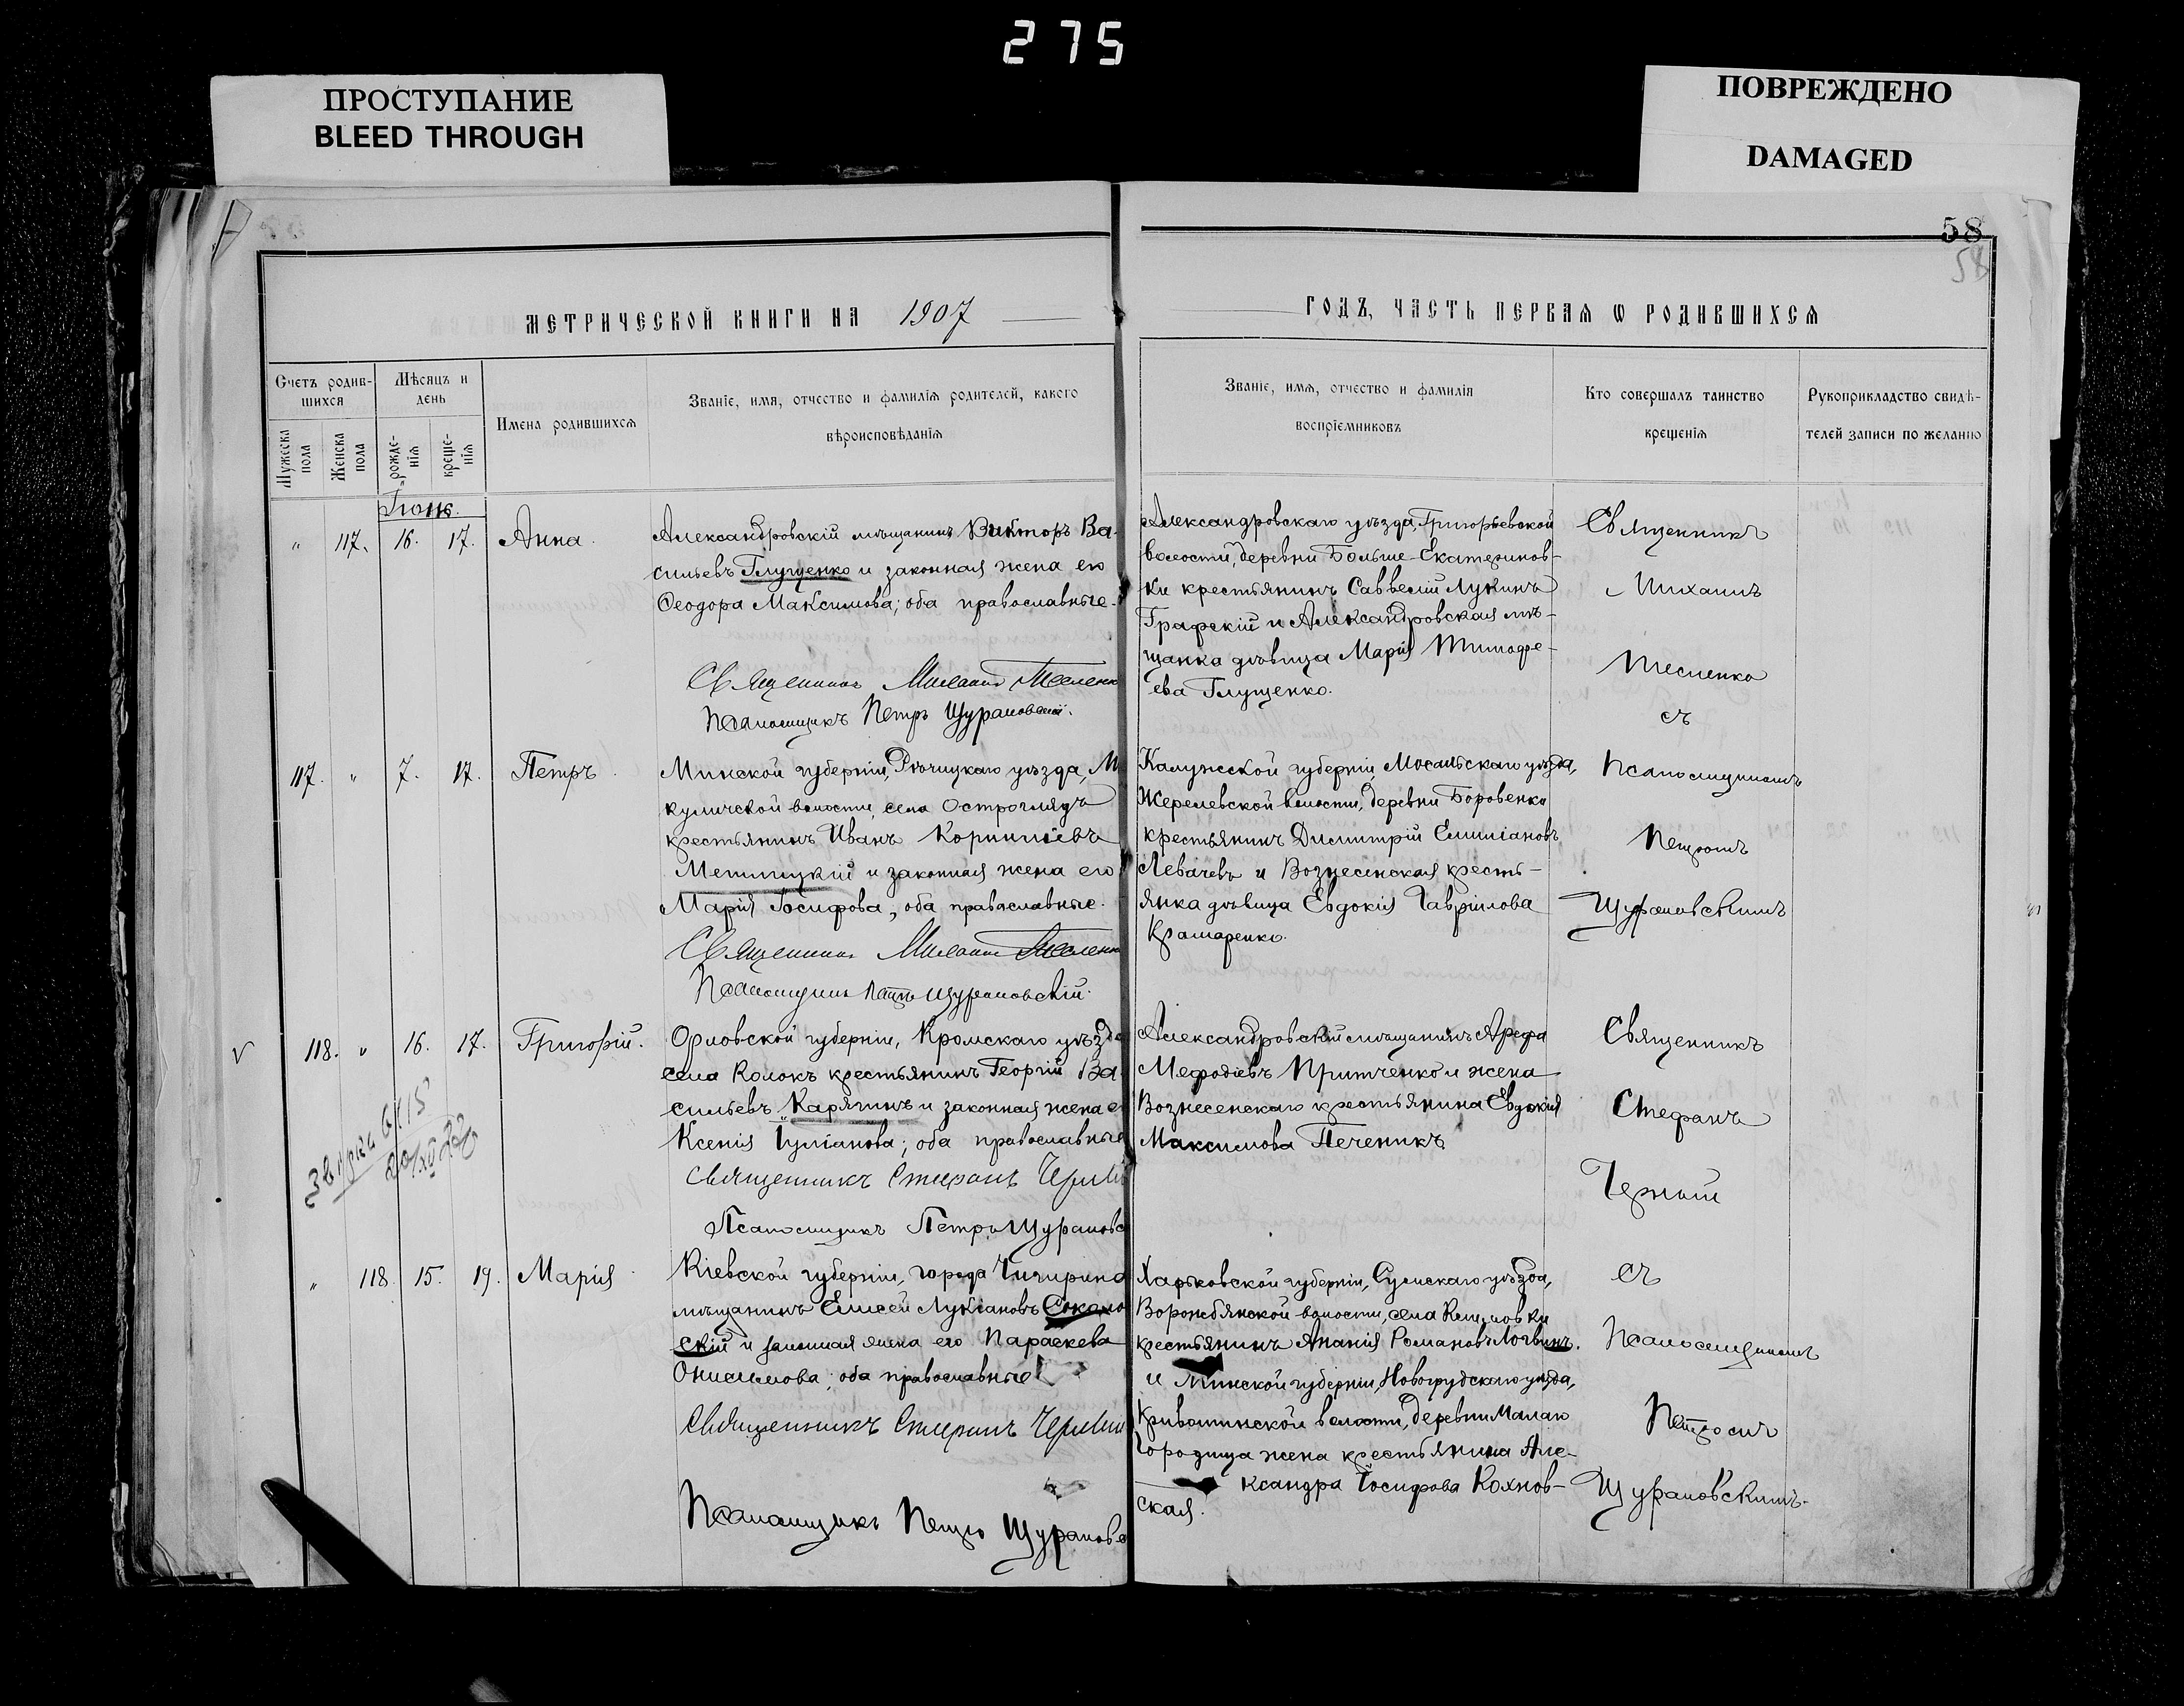 275
ПРОСТУПАНИЕ
BLEED THROUGH
ПОВРЕЖДЕНО
DAMAGED
58
58
МЕТРИЧЕСКОЙ КНИГИ НА 1907
ГОДЪ, ЧАСТЬ ПЕРВАЯ Ѡ РОДИВШИХСЯ
Счетъ родив-
шихся
Мужеска пола
Женска пола
Мѣсяцъ и
день
рожде-
нія
креще-
нія
Имена родившихся
Званіе, имя, отчество и фамилія родителей, какого
вѣроисповѣданія
Званіе, имя, отчество и фамилія
воспріемниковъ
Кто совершалъ таинство
крещенія
Рукоприкладство свидѣ-
телей записи по желанію
" 117. 16. 17. Анна.
Александровскій мѣщанинъ Викторъ Ва-
сильевъ Глущенко и законная жена его
Ѳеодора Максимова; оба православные.
Священникъ Михаилъ Тесленко
Псаломщикъ Петръ Щурановскій.
Александровскаго уѣзда, Григорьевской
волости, деревни Больше-Екатеринов-
ки крестьянинъ Савватій Лукинъ
Графскій и Александровская мѣ-
щанка дѣвица Марія Тимофе-
ева Глущенко.
Священникъ
Михаилъ
Тесленко
съ
117. " 7. 17. Петръ.
Минской губерніи, Рѣчицкаго уѣзда, Ми
куличской волости, села Остроглядъ
крестьянинъ Иванъ Корниліевъ
и законная жена его
Марія Іосифова, оба православные.
Священникъ Михаилъ Тесленко
Псаломщикъ Петръ Щурановскій.
Калужской губерніи, Мосальскаго уѣзда,
Жерелевской волости, деревни Боровенки
крестьянинъ Димитрій Емиліановъ
Левачевъ и Вознесенская кресть-
янка дѣвица Евдокія Гавріилова
Крамаренко.
Псаломщикомъ
Петромъ
Щурановскимъ
118. " 16. 17. Григорій.
Орловской губерніи, Кромскаго уѣзда
села Колокъ крестьянинъ Георгій Ва-
сильевъ Карягинъ и законная жена его
Ксенія Іуліанова; оба православные
Священникъ Стефанъ Черный
Псаломщикъ Петръ Щурановс
Александровскій мѣщанинъ Арефа
Мефодіевъ Притченко и жена
Вознесенскаго крестьянина Евдокія
Максимова Печеникъ
Священникъ
Стефанъ
Черный
" 118. 15. 19. Марія.
Кіевской губерніи, города Чигирина
мѣщанинъ Елисей Лукіановъ Соколо
скій и законная жена его Параскева
Онисимова; оба православные
Священникъ Стефанъ Черный
Псаломщикъ Петръ Щурановс
Харьковской губерніи, Сумскаго уѣзда,
Ворожбянской волости, села
крестьянинъ Ананія Романовъ Логвинъ.
и Минской губерніи, Новогрудскаго уѣзда,
Кривошинской волости, деревни Малаго
Городища жена крестьянина Але-
ксандра Іосифова Кохнов-
ская.
съ
Псаломщикомъ
Петромъ
Щурановскимъ.